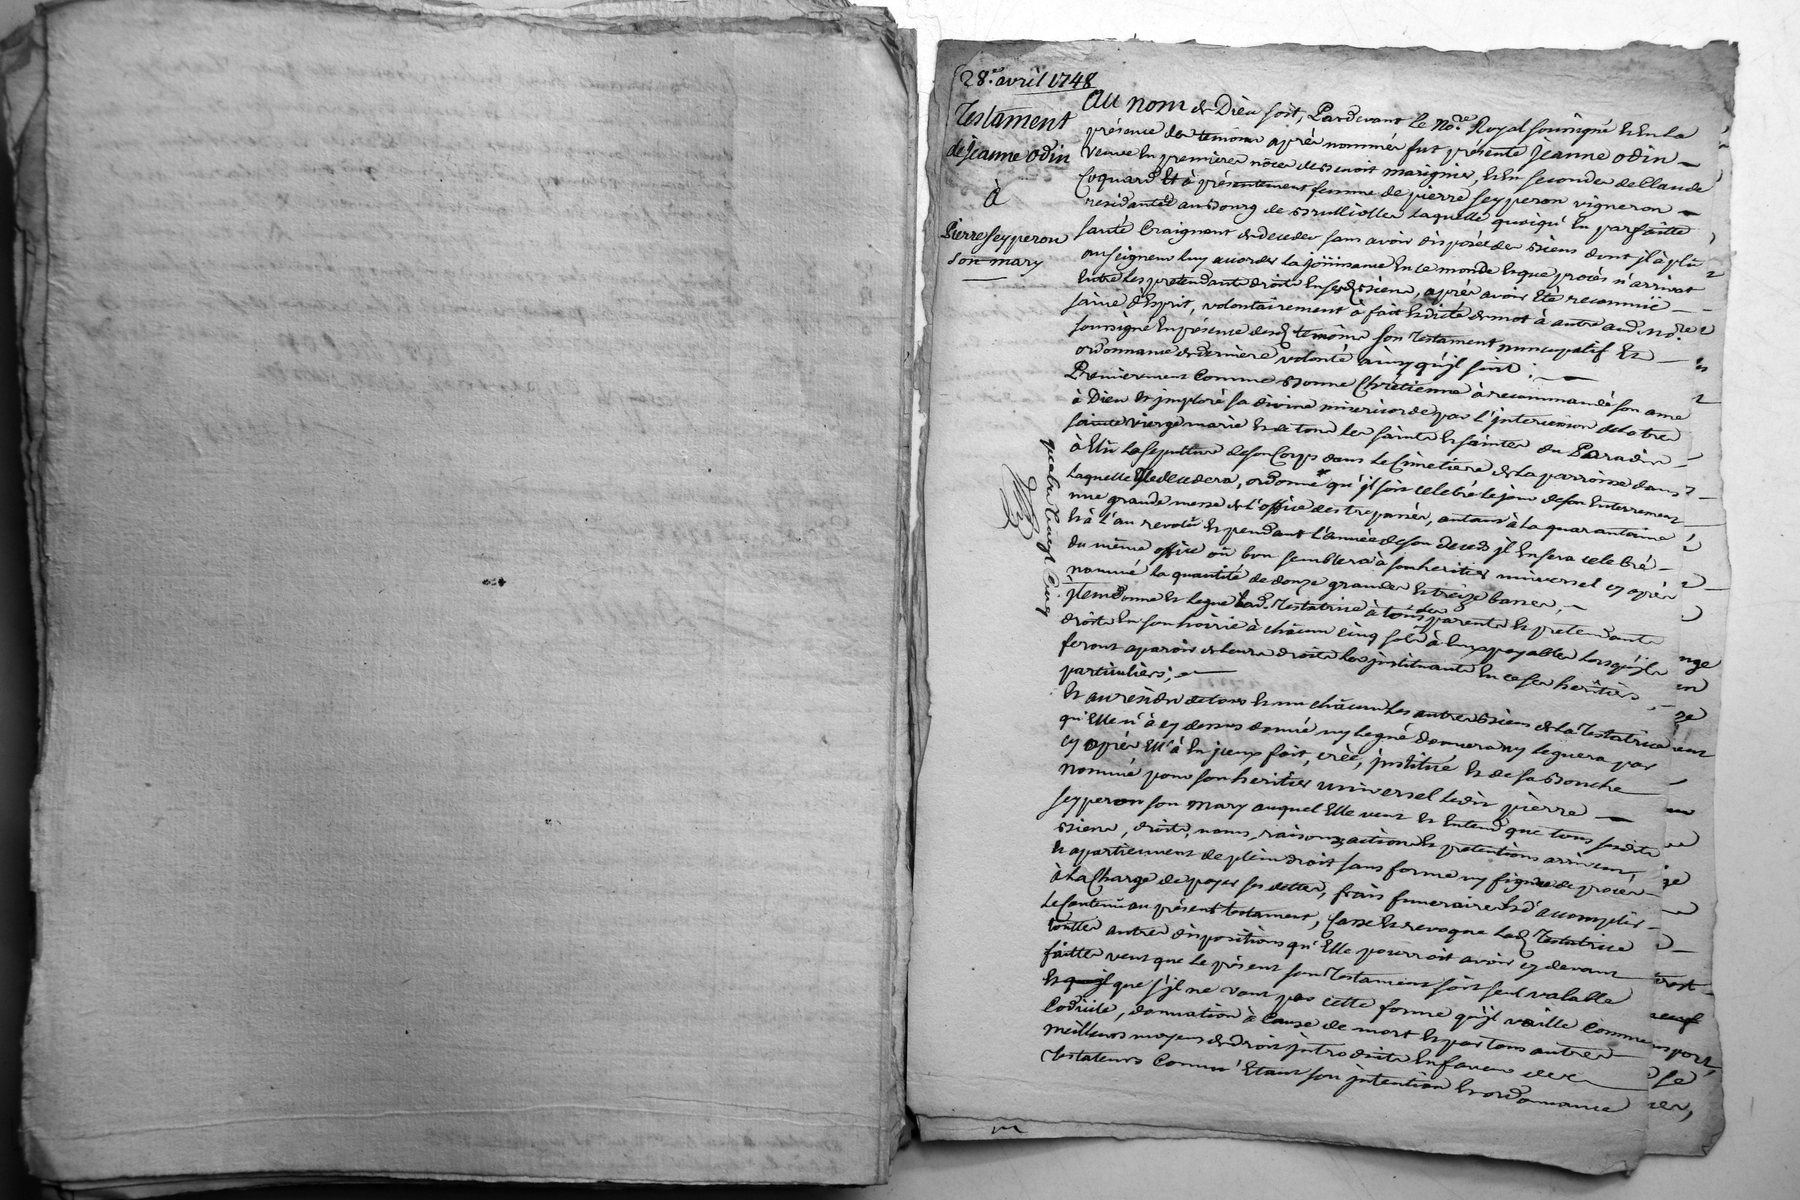 28.e avril 1748
Testament
de Jeanne Odin
à
Pierre Seyperon
son mary
Au nom de Dieu soit, Pardevant le No.re Royal soussigné & en la
présence des temoins après nommés fut présente Jeanne Odin
veuve en premieres nôces de Benoit Marigner, & en secondes de Claude
Coquard Et à présentement femme de pierre Seyperon vigneron
residantes au Bourg de Brulliolles Laquelle quoiqu'en parfaitte
santé Craignant de deceder sans avoir disposé des Biens dont jl à plû
au seigneur luy accorder la joüissance en ce monde & que procès n'arrivat
entre les pretendants droits en sesd. Biens, après avoir été reconnüe
saine d'Esprit, volontairement à fait & dicté de mot à autre aud. No.re
soussigné en présence desd. temoins son Testament nuncupatif &
ordonnance de derniere volonté ainsy qu'jl suit :
Premierement Comme Bonne Chrétienne à recommandé son ame
à Dieu & jmploré sa divine misericorde par l'jntercession de la tres
sainte vierge marie & de tous les saints & saintes du Paradis
à Elû la sepulture de son Corps dans le Cimetiere de la parroisse dans
laquelle Elle decedera, ordonne qu'jl soit celebré le jour de son Enterrement
une grande messe & l'office des trepassés, autant à la quarantaine
& à l'an revolû & pendant l'année de son deced jl en sera celebré
du même office où bon semblera à son heritier universel cy après
nommé la quantité de douze grandes & treize basses,
jtem donne & legue lad. Testatrice à tous ses parents & pretendants
droits en son hoirie à châcun cinq sols à eux payables lorsqu'jls
feront aparoir de leurs droits les jnstituants en ce ses heritiers
particuliers;
& au residu de tous & un châcun les autres Biens de la Testatrice
qu'Elle n'à cy dessus donné ny legué donnera ny leguera par
cy après Elle à en jceux fait, créé, jnstitué & de sa Bouche
nommé pour son heritier universel ledit pierre
Seyperon son mary auquel Elle veut & entend que tous sesdits
Biens, droits, noms, raisons, actions & pretentions arrivent
& apartiennent de plein droit sans forme ny figure de procès
à la Charge de payer ses dettes, frais funeraires & d'accomplir
le Contenu au présent testament, Casse & revoque lad. Testatrice
touttes autres dispositions qu'Elle pourroit avoir cy devant
faittes veut que le présent son Testament soit seul valable
& que s'jl ne vaut pas cette forme qu'jl vaille comme
Codicile, donnation à Cause de mort & par tous autres
meilleurs moyens de droit jntroduits en faveur des
Testateurs Comm' étant son jntention & ordonnance